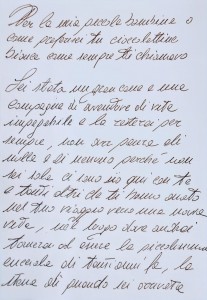 Per la mia piccola bambina o
come preferivi tu cioccolatino
bianco come sempre ti chiamavo
Sei stata un gran cane e una
compagna di avventure di vita
impagabile e la resterai per
sempre, non aver paura di
nulla e di nessuno perché non
sei sola ci sono io qui con te
e tanti altri che ti hanno amato
nel tuo viaggio verso una nuova
vita, nel luogo dove andrai
tornerai ad essere la piccolissima
cucciola di tanti anni fa, la
stessa di quando mi